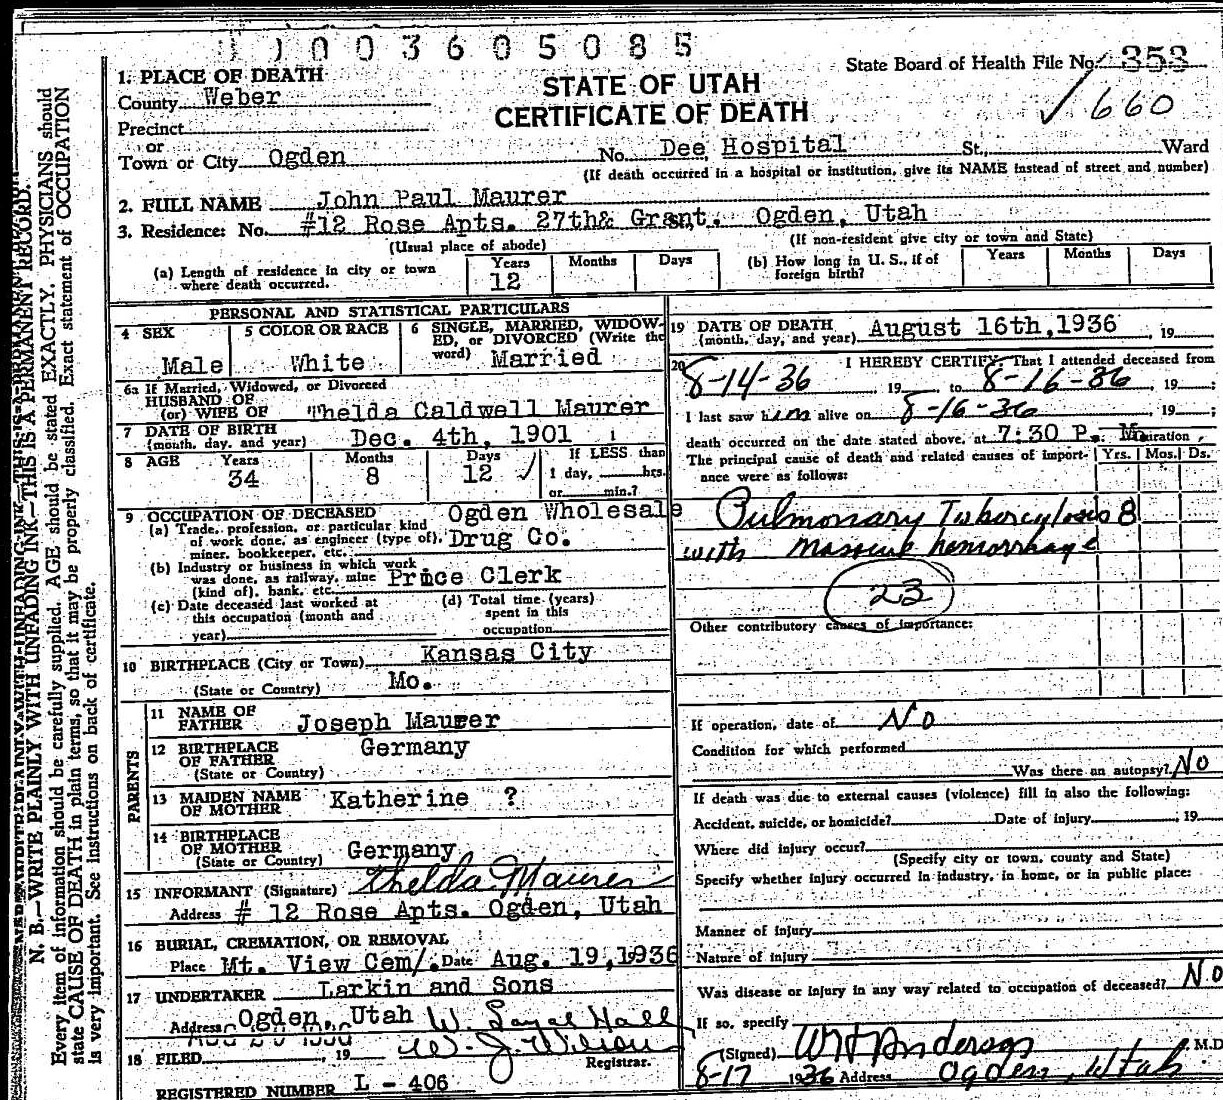 003605085
State Board of Health File No. 353
660
STATE OF UTAH
CERTIFICATE OF DEATH
1. PLACE OF DEATH
County Weber
Precinct
or
Town or City Ogden No. Dee Hospital St., Ward
(If death occurred in a hospital or institution, give its NAME instead of street and number)
2. FULL NAME John Paul Maurer
3. Residence: No. #12 Rose Apts. 27th& Grant. Ogden, Utah
(Usual place of abode) (If non-resident give city or town and State)
(a) Length of residence in city or town where death occurred. Years 12 Months Days
(b) How long in U. S., if of foreign birth? Years Months Days
PERSONAL AND STATISTICAL PARTICULARS
4 SEX Male
5 COLOR OR RACE White
6 SINGLE, MARRIED, WIDOWED, or DIVORCED (Write the word) Married
6a If Married, Widowed, or Divorced
HUSBAND OF
(or) WIFE OF Thelda Caldwell Maurer
7 DATE OF BIRTH
(month, day, and year) Dec. 4th, 1901
8 AGE Years 34 Months 8 Days 12 If LESS than 1 day, hrs. or min.?
9 OCCUPATION OF DECEASED Ogden Wholesale
(a) Trade, profession, or particular kind
of work done, as engineer (type of), Drug Co.
miner, bookkeeper, etc.
(b) Industry or business in which work
was done, as railway, mine Price Clerk
(kind of), bank, etc.
(c) Date deceased last worked at this occupation (month and year)
(d) Total time (years) spent in this occupation
10 BIRTHPLACE (City or Town) Kansas City
(State or Country) Mo.
PARENTS
11 NAME OF FATHER Joseph Maurer
12 BIRTHPLACE OF FATHER Germany
(State or Country)
13 MAIDEN NAME OF MOTHER Katherine ?
14 BIRTHPLACE OF MOTHER
(State or Country) Germany
15 INFORMANT (Signature) Thelda Maurer
Address # 12 Rose Apts. Ogden, Utah
16 BURIAL, CREMATION, OR REMOVAL
Place Mt. View Cem/. Date Aug. 19,1936
17 UNDERTAKER Larkin and Sons
Address Ogden, Utah W.
18 FILED , 19 W. J. Wilson
Registrar.
REGISTERED NUMBER L - 406
19 DATE OF DEATH
(month, day, and year) August 16th,1936, 19
20 I HEREBY CERTIFY, That I attended deceased from
8-14-36, 19 to 8-16-36, 19 ;
I last saw him alive on 8-16-36, 19 ;
death occurred on the date stated above, at 7:30 P. M.
The principal cause of death and related causes of importance were as follows: Yrs. Mos. Ds.
Pulmonary Tuberculosis 8
with massive hemorrhage
23
Other contributory causes of importance:
If operation, date of No
Condition for which performed
Was there an autopsy? No
If death was due to external causes (violence) fill in also the following:
Accident, suicide, or homicide? Date of injury , 19
Where did injury occur?
(Specify city or town, county and State)
Specify whether injury occurred in industry, in home, or in public place:
Manner of injury
Nature of injury
Was disease or injury in any way related to occupation of deceased? No
If so, specify
(Signed) W H Anderson M.D
8-17 1936 Address Ogden, Utah
N. B.—WRITE PLAINLY WITH UNFADING INK—THIS IS A PERMANENT RECORD.
Every item of information should be carefully supplied. AGE should be stated EXACTLY. PHYSICIANS should
state CAUSE OF DEATH in plain terms, so that it may be properly classified. Exact statement of OCCUPATION
is very important. See instructions on back of certificate.